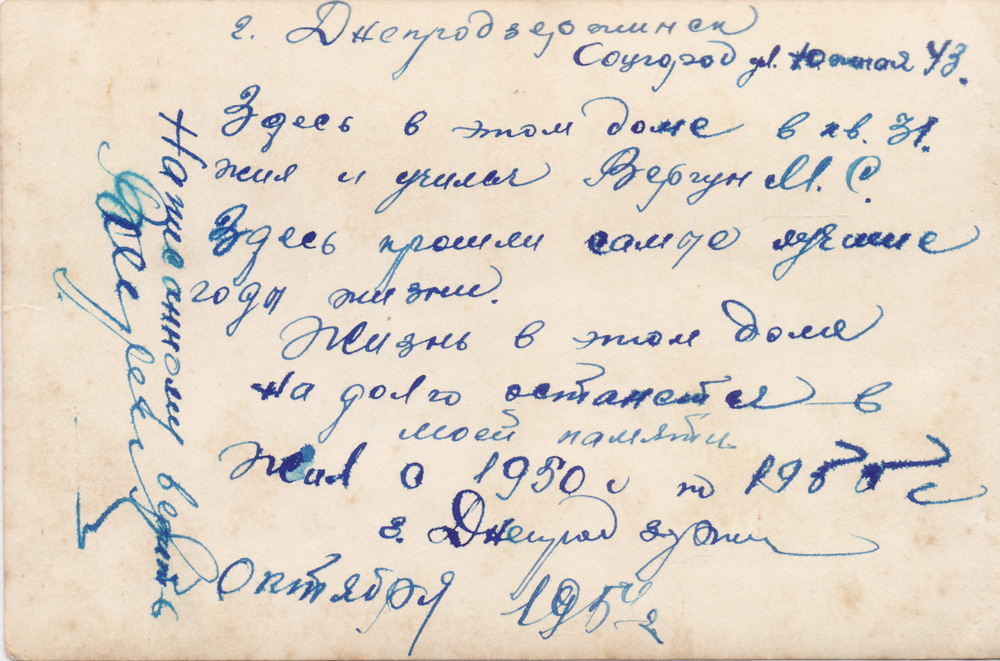 г. Днепродзержинск
Соцгород ул. Южная 43.
Здесь в этом доме в кв. 31.
жил и учился Вергун М. С.
Здесь прошли самые лучшие
годы жизни.
Жизнь в этом доме
на долго останется в
моей памяти.
Жил с 1950 г по 1955 г
г. Днепродзержин
Октября 1954 г
Написанному верить